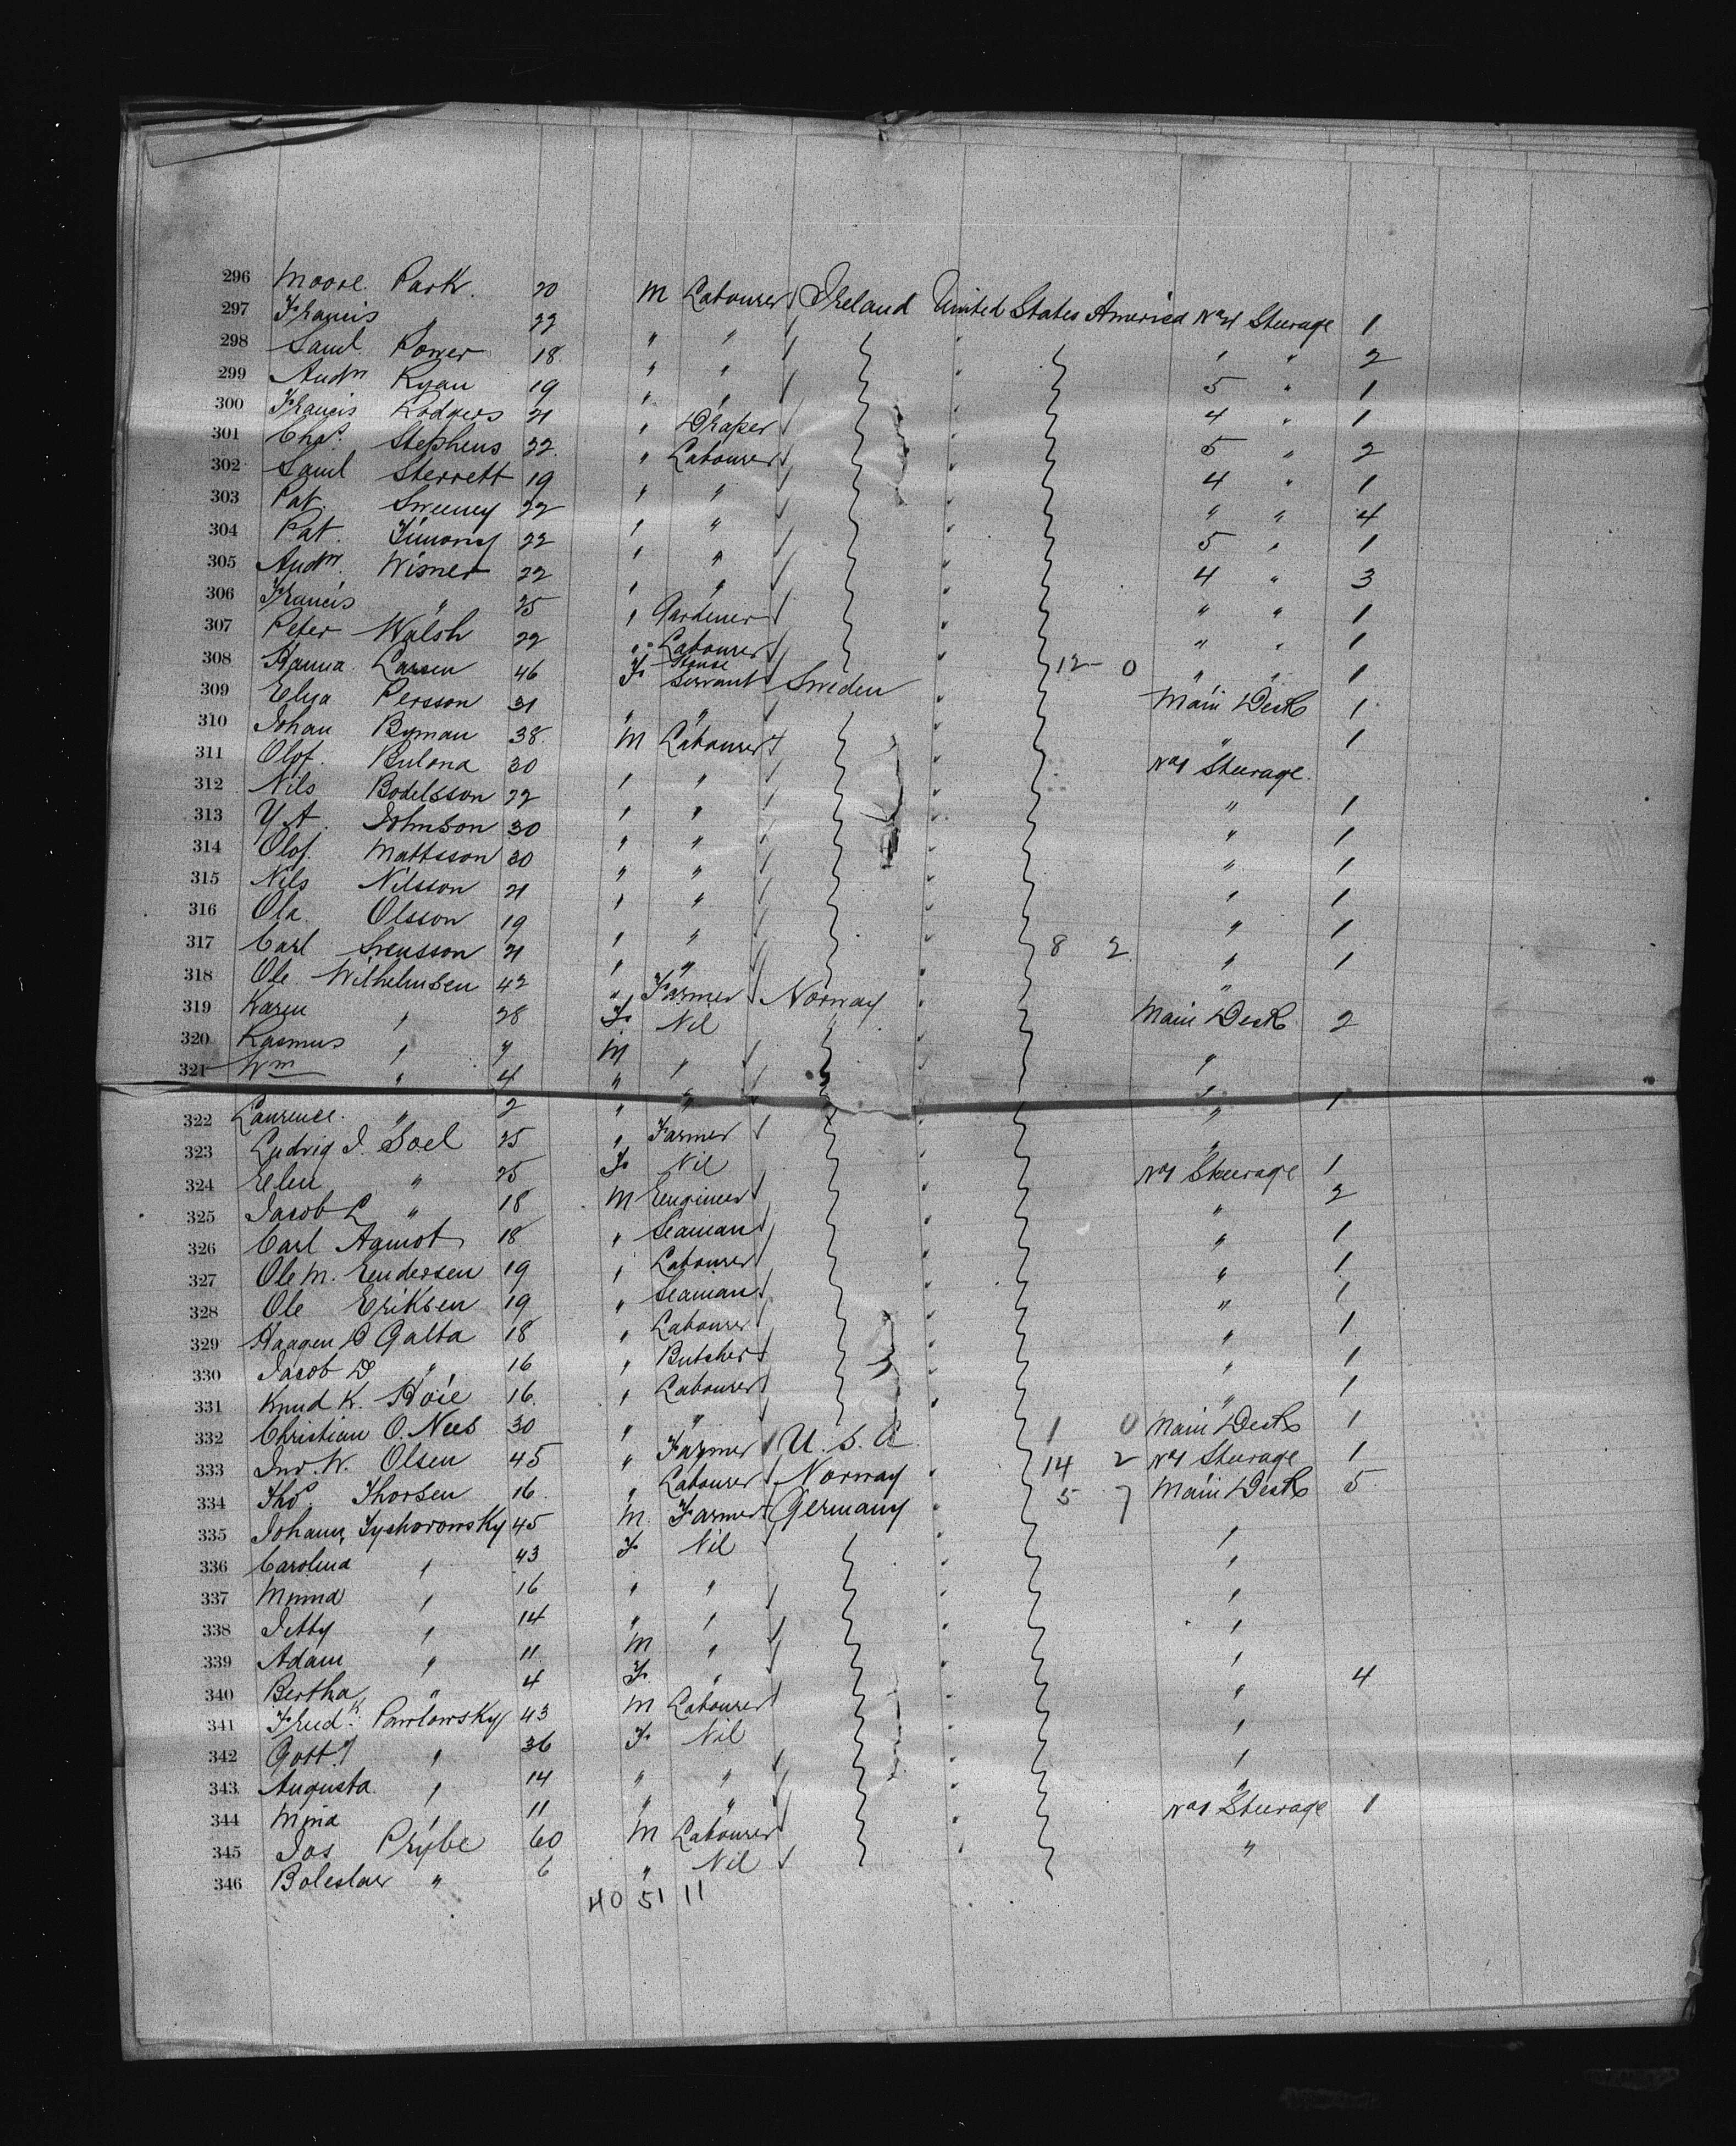 296 Moore Park 20 M Labourer Ireland United States America No 4 Steerage 1
297 Francis " 22 " " " 1 " 2
298 Saml Power 18 " " " 5 " 1
299 Andw Ryan 19 " " " 4 " 1
300 Francis Rodgers 21 " Draper " 5 " 2
301 Chas. Stephens 22 " Labourer " 4 " 1
302 Saml Sterrett 19 " " " " " 4
303 Pat. Sweeney 22 " " " 5 " 1
304 Pat. Timony 22 " " " 4 " 3
305 Andw. Wisner 22 " " " " " 1
306 Francis " 25 " Gardener " " " 1
307 Peter Walsh 22 " Labourer " 12 - 0 " " 1
308 Hanna Larsen 46 F House Servant Sweden " Main Deck 1
309 Elna Persson 31 " " " " 1
310 Johan Byman 38 M Labourer " No 1 Steerage
311 Olof. 30 " " " " 1
312 Nils Bodelsson 22 " " " " 1
313 Y. A. Johnson 30 " " " " 1
314 Olof. Mattsson 30 " " " " 1
315 Nils Nilsson 21 " " " " 1
316 Ola. Olsson 19 " " " " 1
317 Carl Svensson 21 " " " 8 2 "
318 Ole Wilhelmsen 42 " Farmer Norway " Main Deck 2
319 Karen " 28 F Nil "
320 Rasmus " 7 M " "
321 Wm " 4 " " " 1
322 Laurence " 2 " " "
323 Ludvig J. Soel 25 " Farmer " No 1 Steerage 1
324 Elen " 25 F Nil " 2
325 Jacob L " 18 M Engineer " " 1
326 Carl Aamot 18 " Seaman " " 1
327 Ole M. Endersen 19 " Labourer " " 1
328 Ole Eriksen 19 " Seaman " " 1
329 Haagen D Galta 18 " Labourer " " 1
330 Jacob D " 16 " Butcher " " 1
331 Knud K. Hoie 16 " Labourer " "
332 Christian O. Nees 30 " " " 1 0 Main Deck 1
333 Jno. W. Olsen 45 " Farmer U. S. A. 14 2 No 1 Steerage 1
334 Thos. Thorsen 16 " Labourer Norway " 5 7 Main Deck 5
335 Johann Tychorowsky 45 M. Farmer Germany " "
336 Carolina " 43 F Nil "
337 Minna " 16 " " " "
338 Jetty " 14 " " " "
339 Adam " 11 M " " "
340 Bertha " 4 F. " " " 4
341 Fredk. Pawlowsky 43 M Labourer " "
342 Gott. " 36 F Nil " "
343 Augusta " 14 " " " "
344 Mina " 11 " " " No 1 Steerage 1
345 Jos Przybe 60 M Labourer " "
346 Boleslaw " 6 " Nil
40 51 11